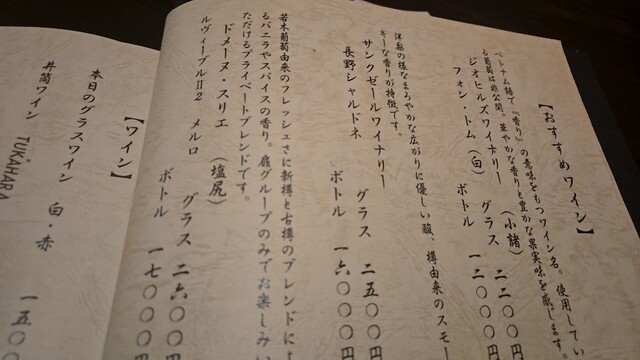 【おすすめワイン】
ベトナム語で『香り』の意味をもつワイン名。使用してい
る葡萄は非公開。華やかな香りと豊かな果実味を感じます
ジオヒルズワイナリー （小諸）
グラス 二二〇〇円
フォン・トム（白） ボトル 一二〇〇〇円
洋梨の様なまろやかな広がりに優しい酸、樽由来のスモー
キーな香りが特徴です。
サンクゼールワイナリー
グラス 二五〇〇円
長野シャルドネ ボトル 一六〇〇〇円
若木葡萄由来のフレッシュさに新樽と古樽のブレンドによ
るバニラやスパイスの香り。扉グループのみでお楽しみい
ただけるプライベートブレンドです。
ドメーヌ・スリエ （塩尻）
グラス 二六〇〇円
ルヴィーブルⅡ2 メルロ ボトル 一七〇〇〇円
【ワイン】
本日のグラスワイン 白・赤 一五〇〇
井筒ワイン
TUKAHARA